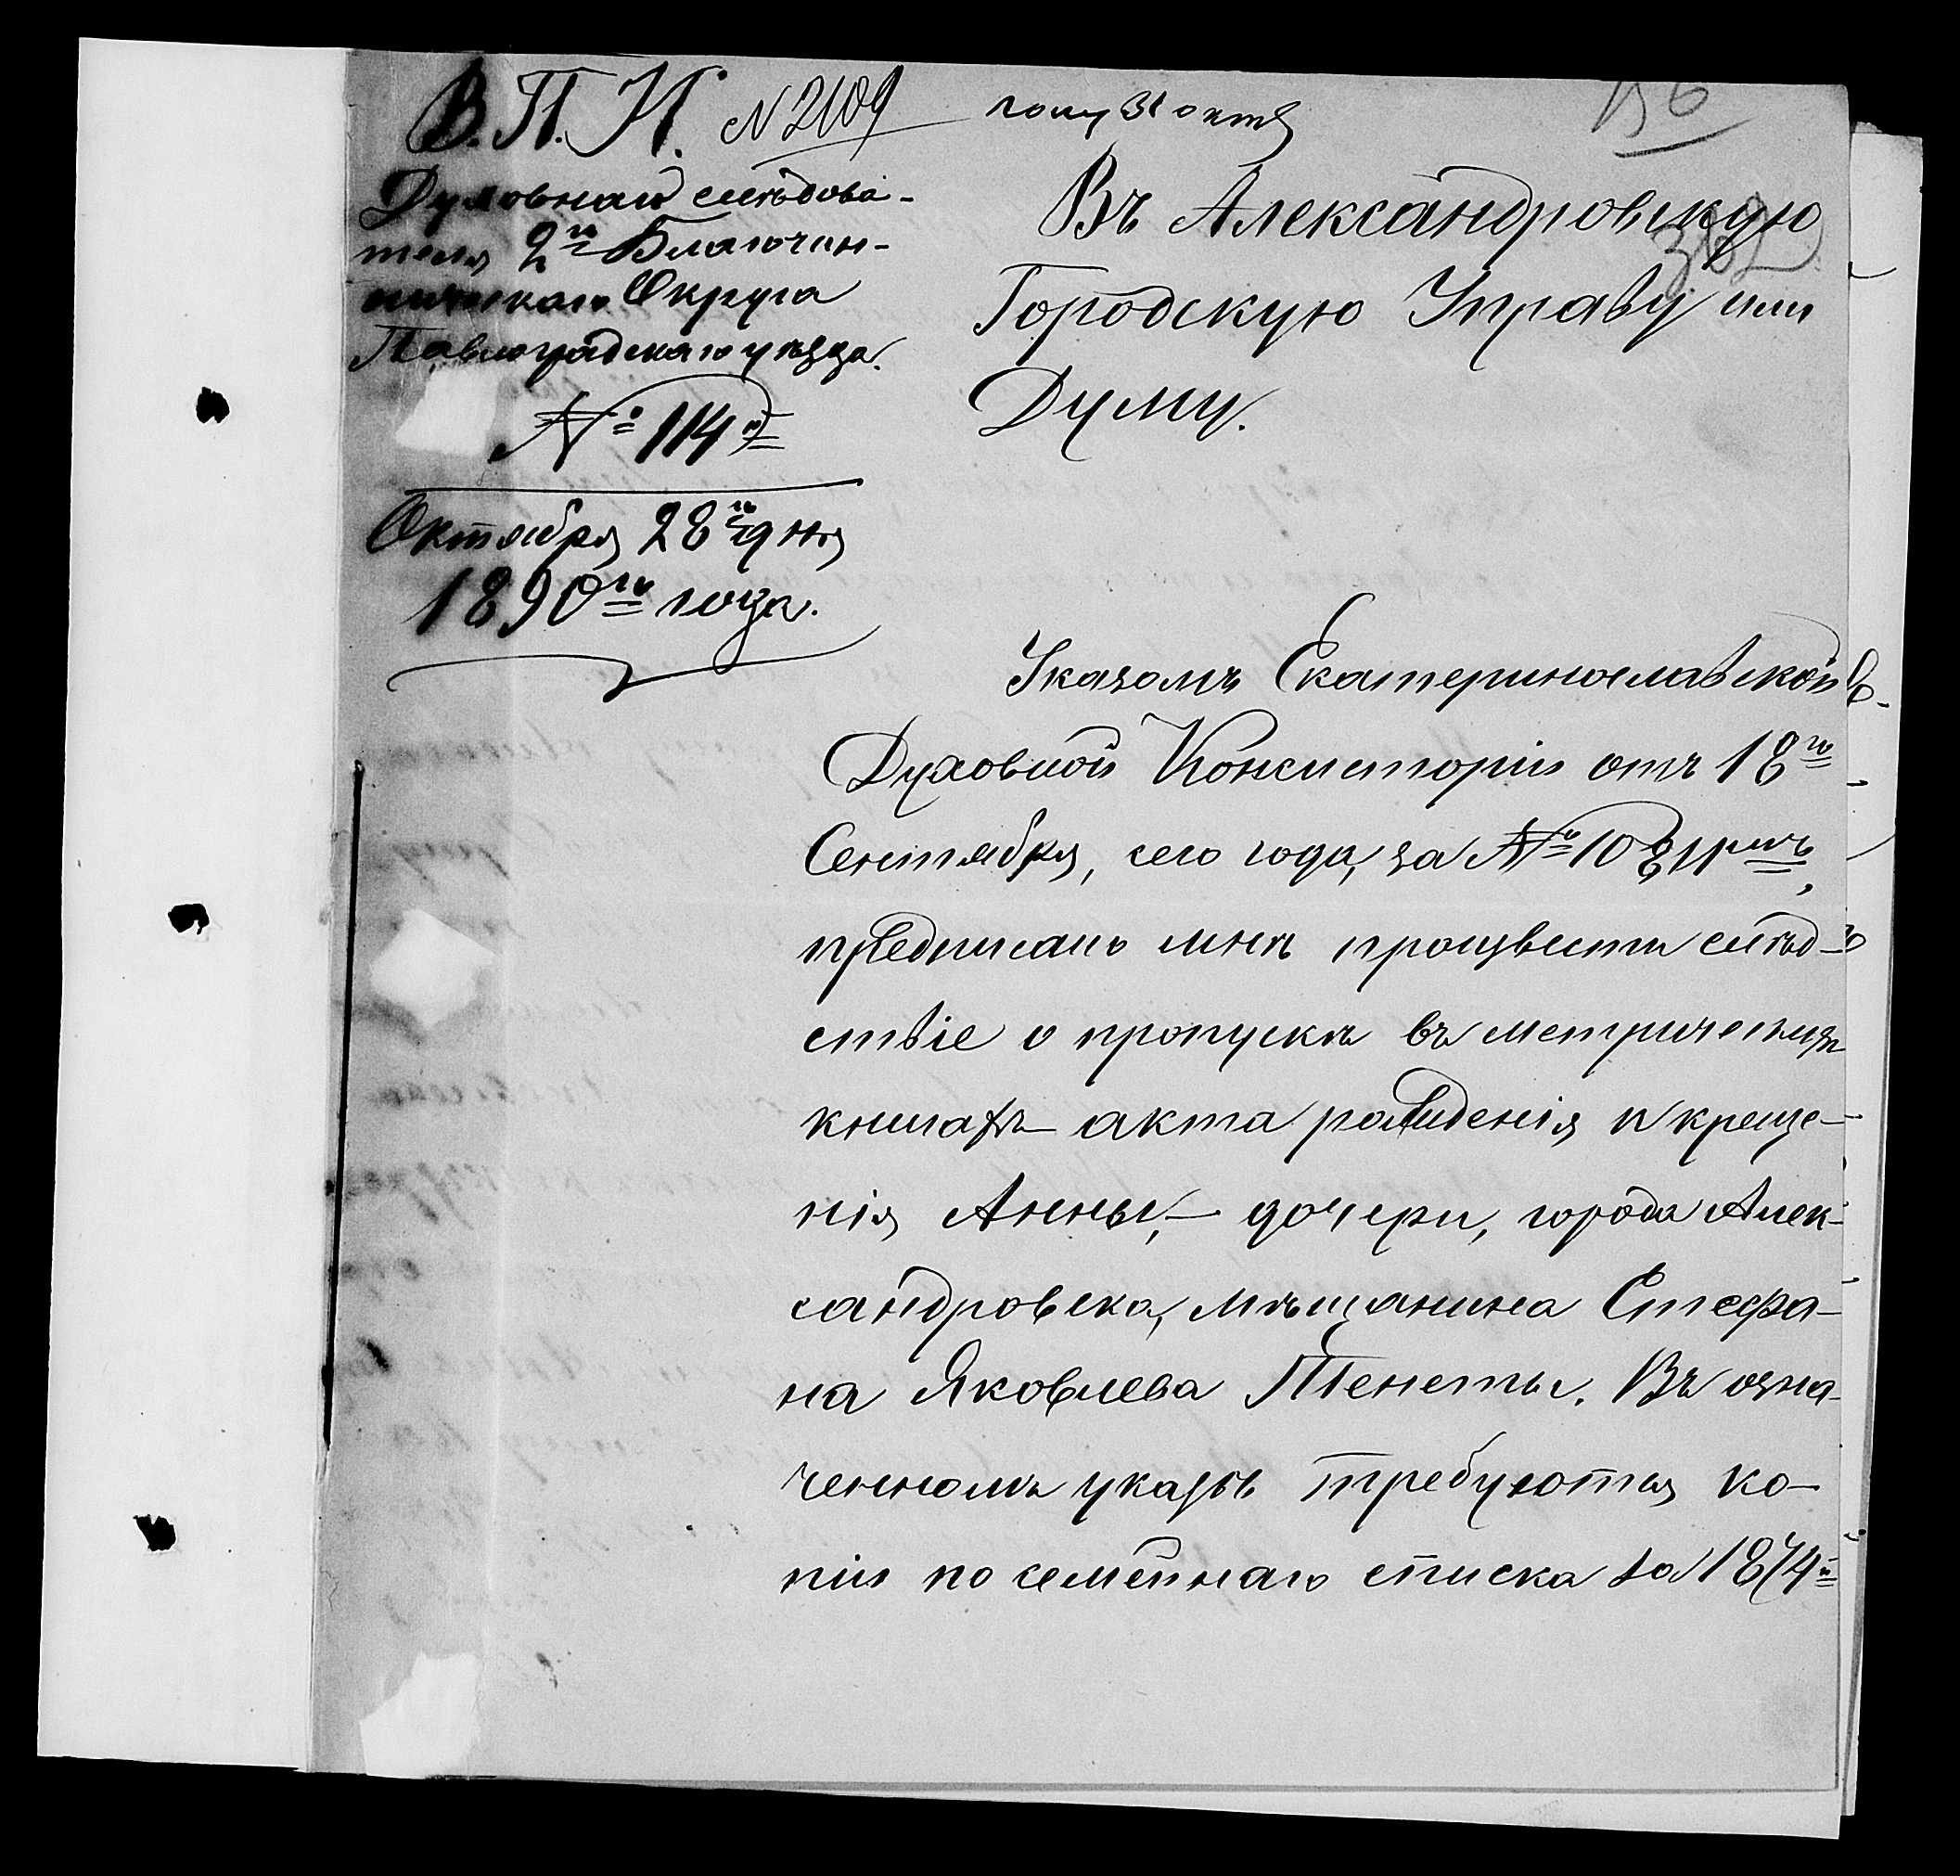 В. П. И. N 2109
полу 31 октяб
156
362
Духовнаго слѣдова-
теля 2го Благочин-
ническаго Округа
Павлоградскаго уѣзда.
№ 114й
Октября 28го дня
1890го года.
Въ Александровскую
Городскую Управу или
Думу.
Указомъ Екатеринославской
Духовной Консисторіи отъ 18го
Сентября, сего года, за № 10811мъ,
предписано мнѣ произвести слѣд-
ствіе о пропускѣ въ метрическихъ
книгахъ акта рожденія и креще-
нія Анны, — дочери, города Алек-
сандровска, мѣщанина Стефа-
на Яковлева Тенеты. Въ озна-
ченномъ указѣ требуются ко-
піи посемейнаго списка за 1874й